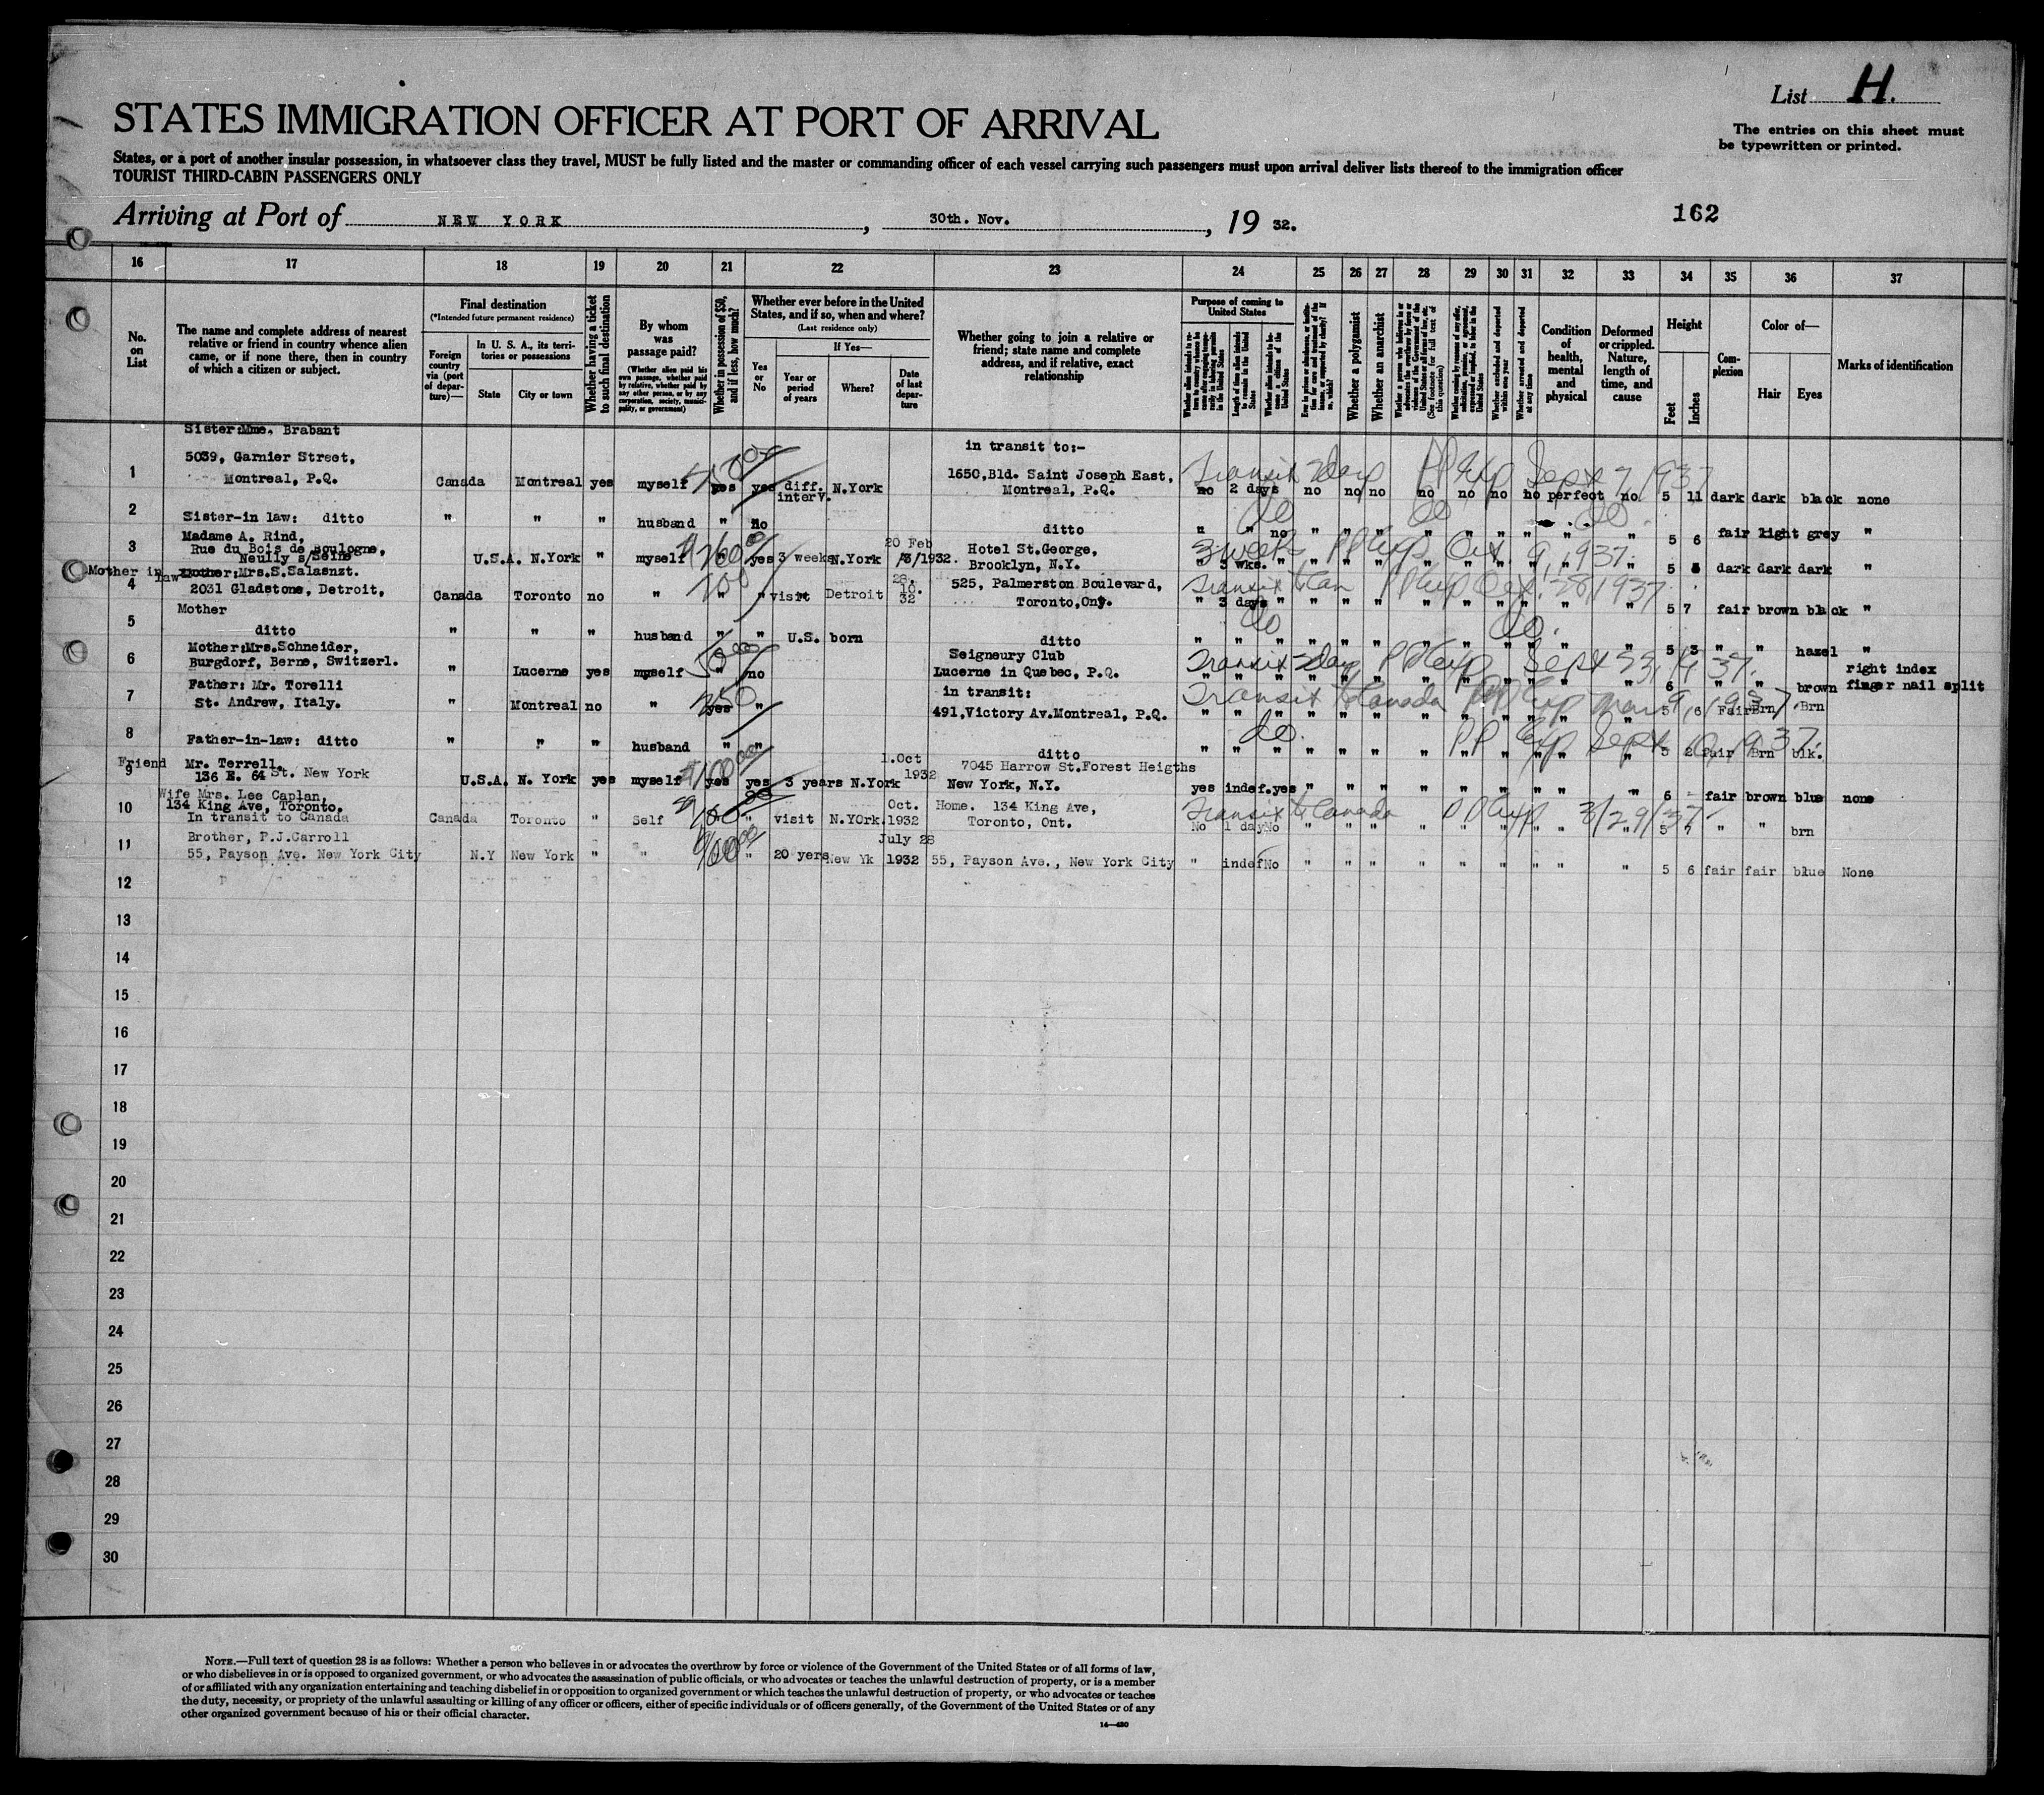 List H.
The entries on this sheet must
be typewritten or printed.
STATES IMMIGRATION OFFICER AT PORT OF ARRIVAL
States, or a port of another insular possession, in whatsoever class they travel, MUST be fully listed and the master or commanding officer of each vessel carrying such passengers must upon arrival deliver lists thereof to the immigration officer
TOURIST THIRD-CABIN PASSENGERS ONLY
Arriving at Port of NEW YORK, 30th. Nov., 19 32.
162
16 17 18 19 20 21 22 23 24 25 26 27 28 29 30 31 32 33 34 35 36 37
No. on List
The name and complete address of nearest relative or friend in country whence alien came, or if none there, then in country of which a citizen or subject.
Final destination
(*Intended future permanent residence)
Foreign country via (port of departure)—
In U. S. A., its territories or possessions
State
City or town
Whether having a ticket to such final destination
By whom was passage paid?
(Whether alien paid his own passage, whether paid by relative, whether paid by any other person, or by any corporation, society, municipality, or government)
Whether in possession of $50, and if less, how much?
Whether ever before in the United States, and if so, when and where?
(Last residence only)
Yes or No
If Yes—
Year or period of years
Where?
Date of last departure
Whether going to join a relative or friend; state name and complete address, and if relative, exact relationship
Purpose of coming to United States
Length of time alien intends to remain in the United States
Whether alien intends to become a citizen of the United States
Whether a polygamist
Whether an anarchist
Whether excluded and deported within one year
Whether arrested and deported at any time
Condition of health, mental and physical
Deformed or crippled. Nature, length of time, and cause
Height
Feet
Inches
Complexion
Color of—
Hair
Eyes
Marks of identification
Sister:Mme. Brabant
1 5039, Garnier Street,
Montreal, P.Q. Canada Montreal yes myself yes yes diff. interv. N.York in transit to:- 1650,Bld. Saint Joseph East, Montreal, P.Q. Transit 2 days PP Exp Sept 7, 1937 no 2 days no no no no no no no perfect no 5 11 dark dark black none
2 Sister-in law: ditto " " " husband " no ditto do do do " " no " " " " " " " " " 5 6 fair light grey "
3 Madame A. Rind,
Rue du Bois de Boulogne,
Neully s/Seine U.S.A. N.York " myself " yes 3 weeks N.York 20 Feb /3/1932. Hotel St.George, Brooklyn, N.Y. 3 weeks PP Exp Oct 9, 1937. " 3 wks. " " " " " " " " " " 5 dark dark dark "
Mother in law Mother:Mrs.S.Salasnzt.
4 2031 Gladstone, Detroit, Canada Toronto no " " " visit Detroit 32 525, Palmerston Boulevard, Toronto,Ont. Transit to Can 28/1937 " 3 days " " " " " " " " " " 5 7 fair brown black "
Mother
5 ditto " " " husband " " U.S. born ditto do do. " " " " " " " " " " " " 5 3 " " hazel "
6 Mother:Mrs.Schneider,
Burgdorf, Berne, Switzerl. " Lucerne yes myself " no Seigneury Club Lucerne in Quebec, P.Q. Transit 2 days PP Exp Sept " " " " " " " " " " " " 6 " " " brown right index finger nail split
7 Father: Mr. Torelli
St. Andrew, Italy. " Montreal no " yes " in transit: 491,Victory Av.Montreal, P.Q. Transit to Canada PP Exp " " " " " " " " " " " " 5 6 Fair Brn Brn
8 Father-in-law: ditto " " " husband " " ditto do. PP Exp Sept " " " " " " " " " " " " 5 2 fair Brn blk.
9 Friend Mr. Terrell.
136 E. 64 St. New York U.S.A. N. York yes myself $100.00 yes yes 3 years N.York 1.Oct 1932 7045 Harrow St.Forest Heigths New York, N.Y. yes indef. yes " " " " " " " " " 6 - fair brown blue none
10 Wife Mrs. Lee Caplan,
134 King Ave, Toronto,
In transit to Canada Canada Toronto " Self " visit N.YOrk Oct. 1932 Home. 134 King Ave, Toronto, Ont. Transit to Canada PP Exp 3/29/37 No 1 day No " " " " " " " " " 5 7 " " brn
11 Brother, P.J.Carroll
55, Payson Ave. New York City N.Y New York " " " 20 yers New Yk July 28 1932 55, Payson Ave., New York City " indef No " " " " " " " " " 5 6 fair fair blue None
12
13
14
15
16
17
18
19
20
21
22
23
24
25
26
27
28
29
30
NOTE.—Full text of question 28 is as follows: Whether a person who believes in or advocates the overthrow by force or violence of the Government of the United States or of all forms of law,
or who disbelieves in or is opposed to organized government, or who advocates the assassination of public officials, or who advocates or teaches the unlawful destruction of property, or is a member
of or affiliated with any organization entertaining and teaching disbelief in or opposition to organized government or which teaches the unlawful destruction of property, or who advocates or teaches
the duty, necessity, or propriety of the unlawful assaulting or killing of any officer or officers, either of specific individuals or of officers generally, of the Government of the United States or of any
other organized government because of his or their official character.
14—430